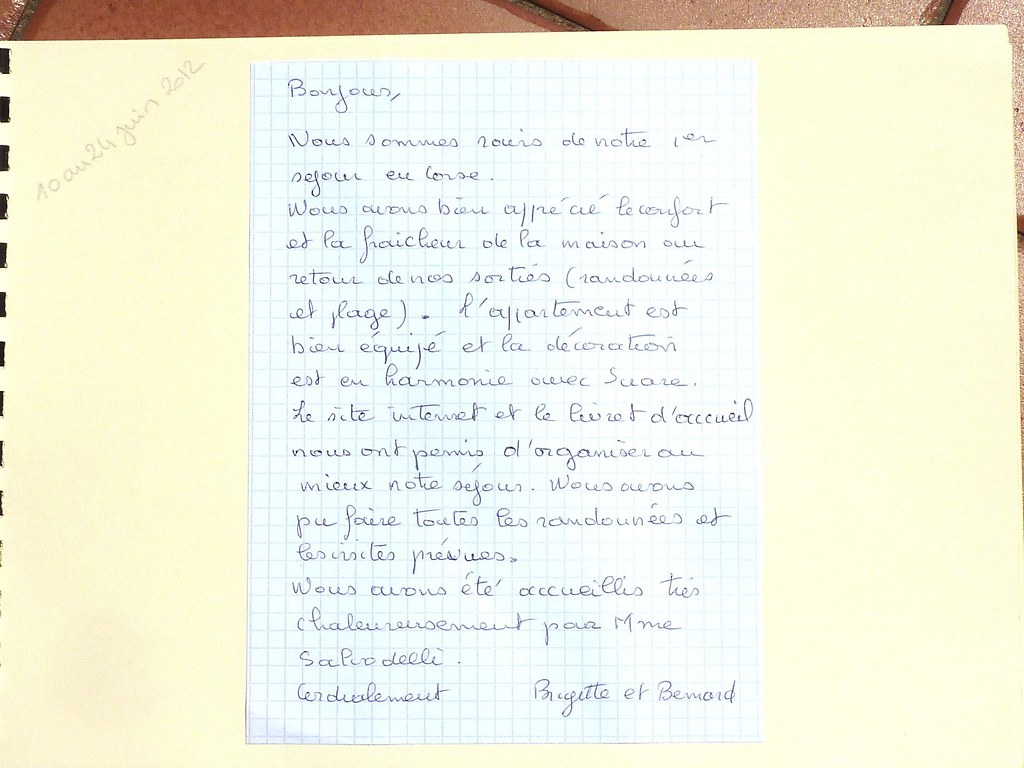 10 au 24 juin 2012
Bonjour,
Nous sommes ravis de notre 1er
séjour en Corse.
Nous avons bien apprécié le confort
et la fraicheur de la maison au
retour de nos sorties (randonnées
et plage). L'appartement est
bien équipé et la décoration
est en harmonie avec Suare.
Le site internet et le livret d'accueil
nous ont permis d'organiser au
mieux notre séjour. Nous avons
pu faire toutes les randonnées et
les visites prévues.
Nous avons été accueillis très
chaleureusement par Mme
Salvodelli.
Cordialement Brigitte et Bernard